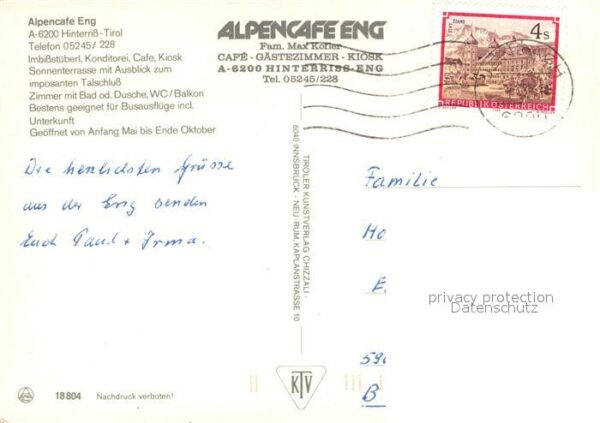 Alpencafe Eng
A-6200 Hinterriß-Tirol
Telefon 05245/228
Imbißstüberl, Konditorei, Cafe, Kiosk
Sonnenterrasse mit Ausblick zum
imposanten Talschluß
Zimmer mit Bad od. Dusche, WC/Balkon
Bestens geeignet für Busausflüge incl.
Unterkunft
Geöffnet von Anfang Mai bis Ende Oktober
ALPENCAFE ENG
Fam. Max Kofler
CAFÉ - GÄSTEZIMMER - KIOSK
A-6200 HINTERRISS-ENG
Tel. 05245/228
4s
STIFT STAMS
REPUBLIK ÖSTERREICH
Die herzlichsten Grüsse
aus der Eng senden
Euch Paul + Irma.
TIROLER KUNSTVERLAG CHIZZALI
6040 INNSBRUCK - NEU-RUM, KAPLANSTRASSE 10
Familie
Ho
E
590
B
privacy protection
Oldthing
KTV
18804 Nachdruck verboten!